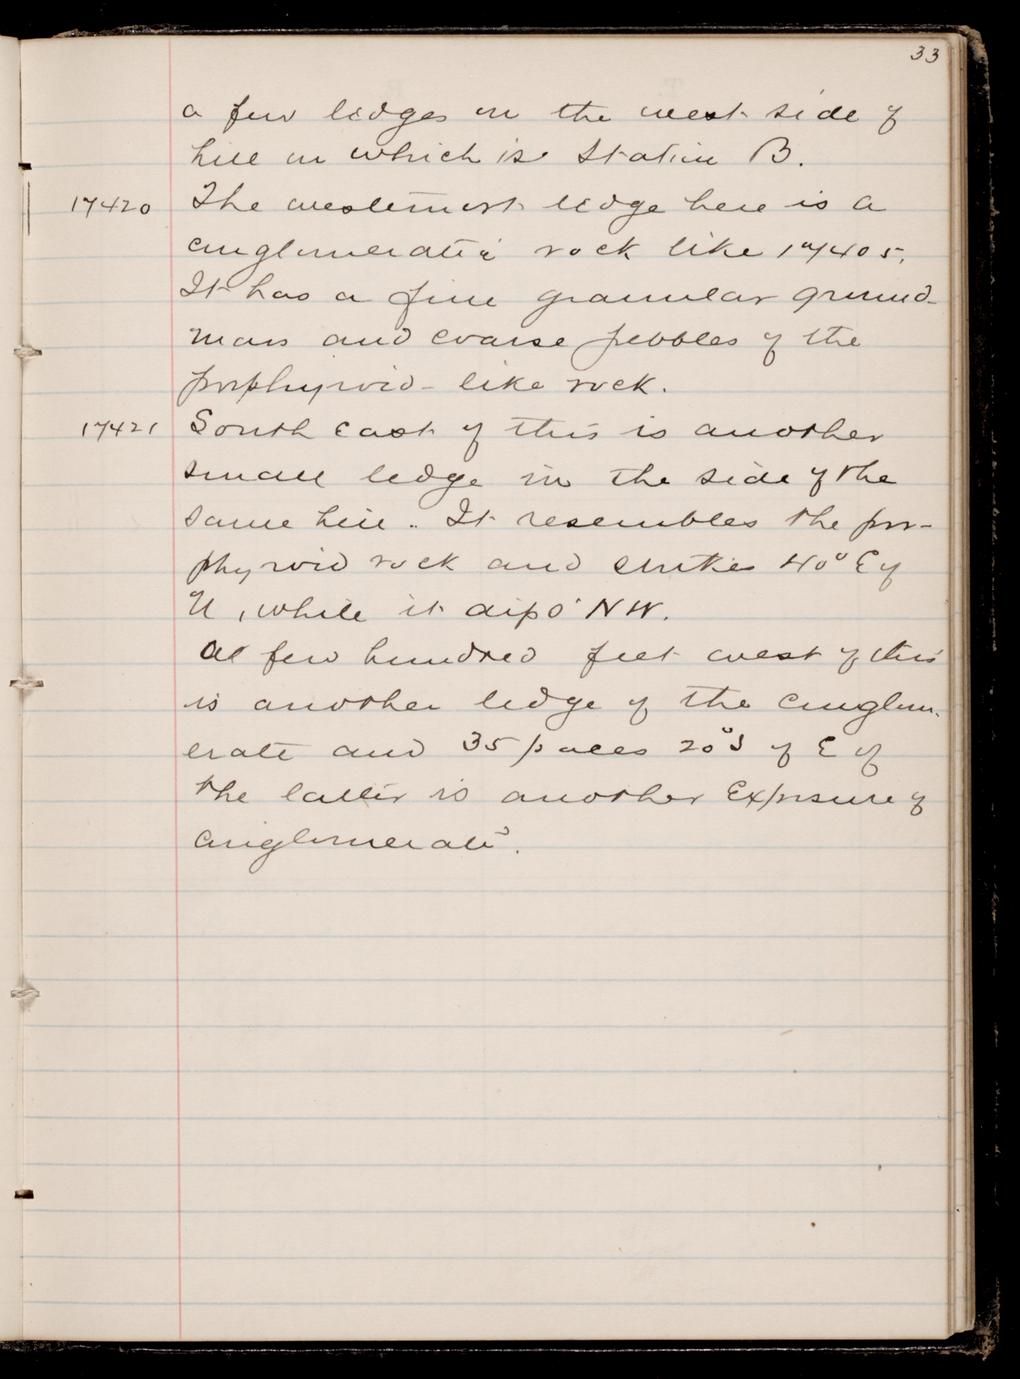 33
a few ledges on the west side of
hill on which is Station B.
17420 The westernmost ledge here is a
conglomeratic rock like 17405.
It has a fine granular ground-
mass and coarse pebbles of the
porphyroid-like rock.
17421 South east of this is another
small ledge in the side of the
same hill. It resembles the por-
phyroid rock and strikes 40° E of
N, while it dips NW.
A few hundred feet west of this
is another ledge of the conglom-
erate and 35 paces 20° S of E of
the latter is another exposure of
conglomerate.